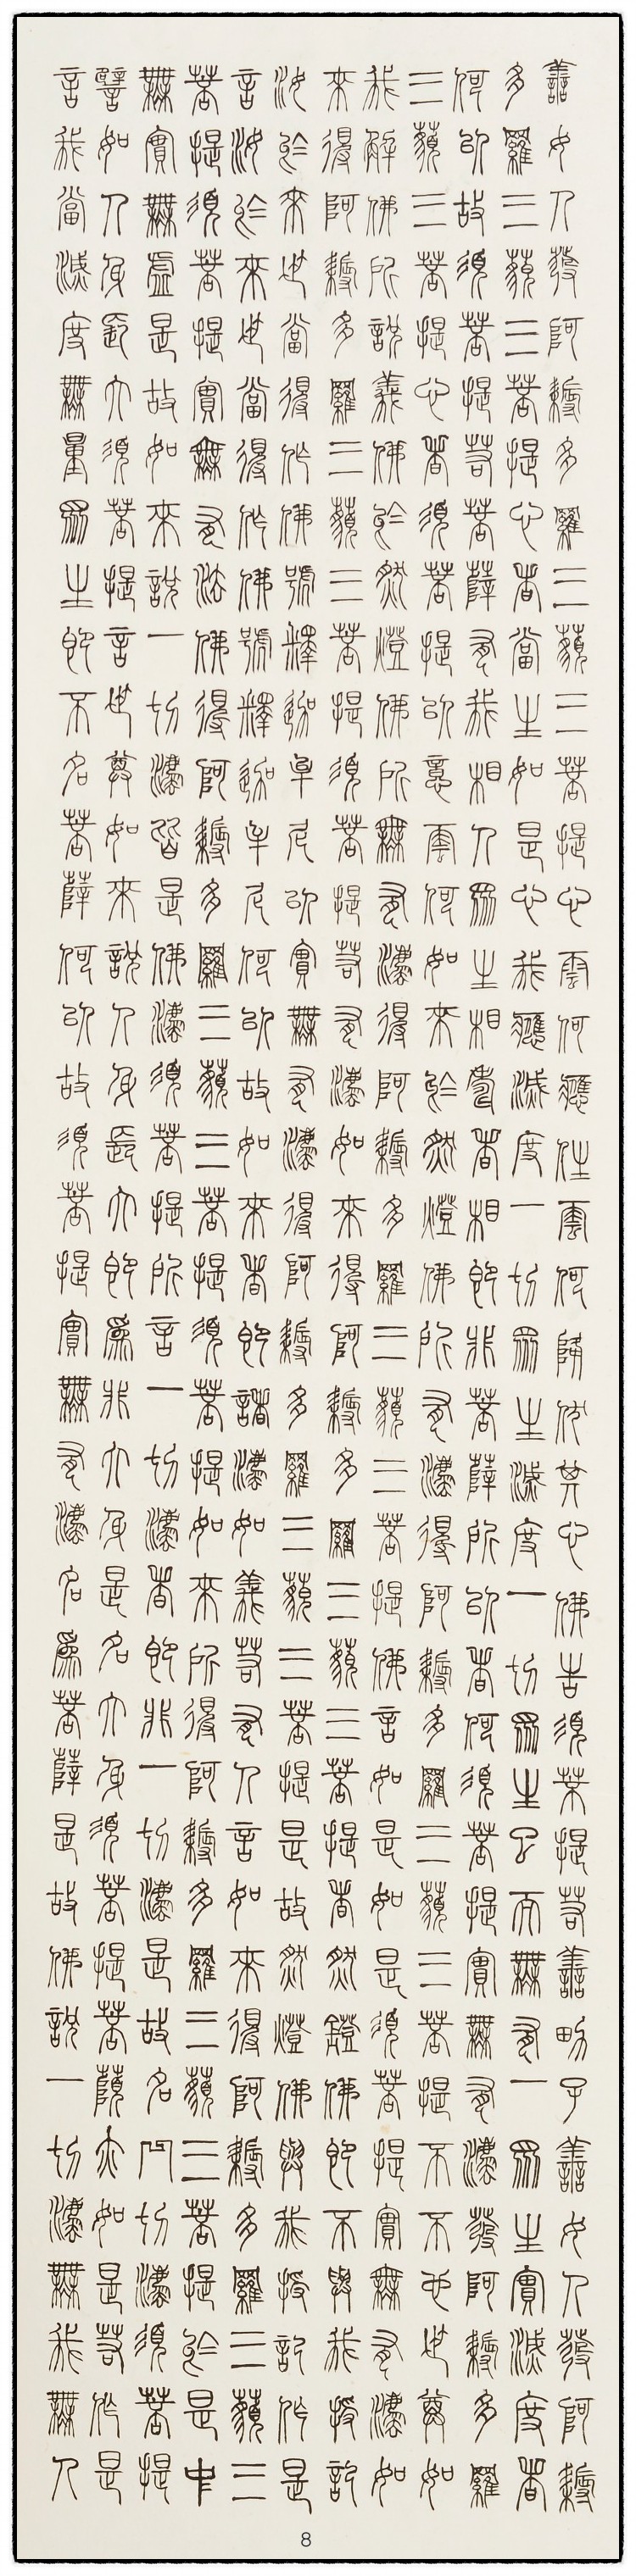 善女人發阿耨多羅三藐三菩提心雲何應住雲何降伏其心佛告須菩提若善男子善女人發阿耨
多羅三藐三菩提心者當生如是心我應滅度一切眾生滅度一切眾生已而無有一眾生實滅度者
何以故須菩提若菩薩有我相人眾生相壽者相即非菩薩所以者何須菩提實無有法發阿耨多羅
三藐三菩提心者須菩提以意雲何如來於然燈佛所有法得阿耨多羅三藐三菩提不不也世尊如
我解佛所說義佛於然燈佛所無有法得阿耨多羅三藐三菩提佛言如是如是須菩提實無有法如
來得阿耨多羅三藐三菩提須菩提若有法如來得阿耨多羅三藐三菩提者然鐙佛即不與我授記
汝於來世當得作佛號釋迦牟尼以實無有法得阿耨多羅三藐三菩提是故然燈佛與我授記作是
言汝於來世當得作佛號釋迦牟尼何以故如來者即諸法如義若有人言如來得阿耨多羅三藐三
菩提須菩提實無有法佛得阿耨多羅三藐三菩提須菩提如來所得阿耨多羅三藐三菩提於是中
無實無虛是故如來說一切法皆是佛法須菩提所言一切法者即非一切法是故名門切法須菩提
譬如人身長大須菩提言世尊如來說人身長大即為非大身是名大身須菩提菩薩亦如是若作是
言我當滅度無量眾生即不名菩薩何以故須菩提實無有法名為菩薩是故佛說一切法無我無人
8